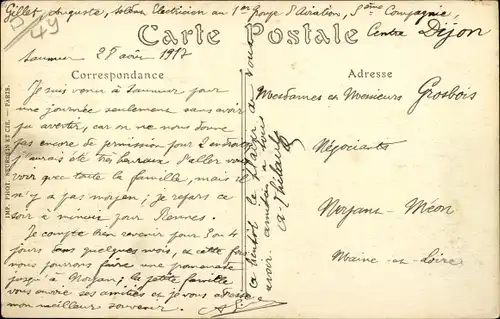 Gillet, Auguste, sapeur Electricien au 1er Groupe d'Aviation, 3ème Compagnie
Centre Dijon
Carte Postale
Saumur 28 août 1917
Correspondance
Adresse
Je suis venu à Saumur pour
une journée seulement sans avoir
pu avertir, car on ne nous donne
pas encore de permission pour 2 endroits
j'aurais été très heureux d'aller vous
voir avec toute la famille, mais il
n'y a pas moyen, je repars ce
soir à minuit pour Rennes.
Je compte bien revenir pour 3 ou 4
jours dans quelques mois, et cette fois
nous pourrons faire une promenade
jusqu'à Noyant; la petite famille
vous envoie ses amitiés et je vous adresse
mon meilleur souvenir. AG
à bientôt le plaisir de vous
revoir amitiés à tous
A. Thibault
Mesdames et Messieurs Grosbois
Négociants
Noyant-Méon
Maine-et-Loire
IMP. PHOT. NEURDEIN ET CIE. — PARIS.